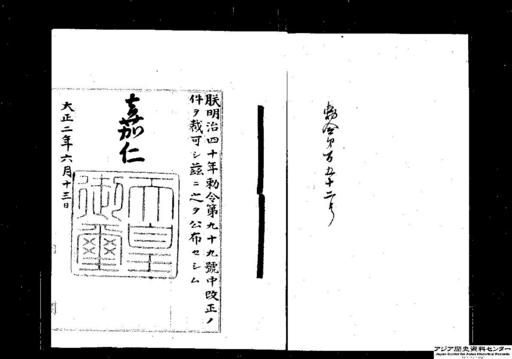 勅令第百五十二号
朕明治四十年勅令第九十九號中改正ノ
件ヲ裁可シ茲ニ之ヲ公布セシム
嘉仁
天皇
御璽
大正二年六月十三日
アジア歴史資料センター
Japan Center for Asian Historical Records